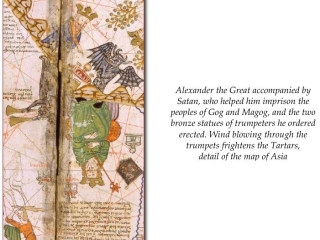 Alexander the Great accompanied by
Satan, who helped him imprison the
peoples of Gog and Magog, and the two
bronze statues of trumpeters he ordered
erected. Wind blowing through the
trumpets frightens the Tartars,
detail of the map of Asia